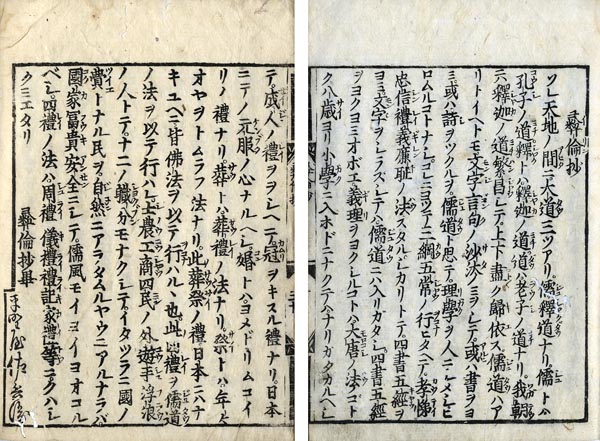 彝倫抄
ソレ天地ノ間ニ大道三ツアリ。儒釋道ナリ。儒トハ
孔子ノ道釋トハ釋迦ノ道道ハ老子ノ道ナリ。我朝
ニハ釋迦ノ道繁昌シテ上下盡ク歸依ス儒道ハア
リトイヘトモ文字言句ノ沙汰ヲシテ。或ハ書ヲヨ
ミ或ハ詩ヲツクルヲ。儒道ト思テ理學ヲ人ニシメシヒ
ロムルコトナシ。コレニヨツテ三綱五常ノ行モタヘテ。孝悌
忠信禮義廉耻ノ法スタルバカリトテ。四書五經
ヨミ文字ヲシラスシテハ儒道ニ入ガタシ。四書五經
ヲヨクヨミオボエ義理ヲヨクシルコトハ大唐ノ法ノコト
ク八歳ヨリ小學ニ入ホドニナクテハナリガタカルヘシ
テ。成人ノ禮ヲヲシヘテ冠ヲキスル禮ナリ。日本
ニテノ元服ノ心ナルヘシ婚トハヨメドリムコイ
リノ禮ナリ。葬トハ葬禮ノ法ナリ。祭トハ年々
オヤヲトムラフ法ナリ。此葬祭ノ禮日本ニハナ
キユヘニ皆佛法ヲ以テ行ハルヽ也。此四禮ヲ儒道
ノ法ヲ以テ行ハレ士農工商四民ノ外遊手浮浪
ノ人トテ。ナニノ職分モナクシテ。イタツラニ國ノ
費トナル民ヲ。自然ニアラタムルヤウニアルナラバ
國家冨貴安全ニシテ。儒風モイヨイヨオコル
ベシ。四禮ノ法ハ周禮儀禮禮記家禮等ニクハシ
クミエタリ 彝倫抄畢